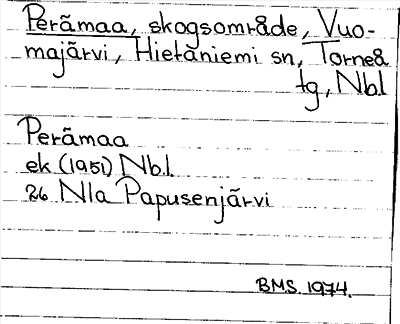 Perämaa, skogsområde, Vuo-
majärvi, Hietaniemi sn, Torneå
tg, Nbl
Perämaa
ek (1951) Nbl.
26 Nla Papusenjärvi
BMS. 1974.